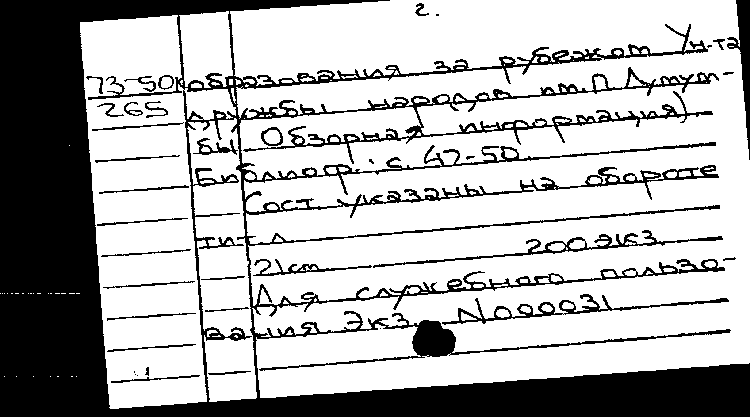 2.
73-50к образования за рубежом Ун-та
265 дружбы народов им. П. Лумум-
бы. Обзорная информация).
Библиогр.: с. 47-50.
Сост. указаны на обороте
тит. л.
21 см. 200 экз.
Для служебного пользо-
вания. Экз. N000031